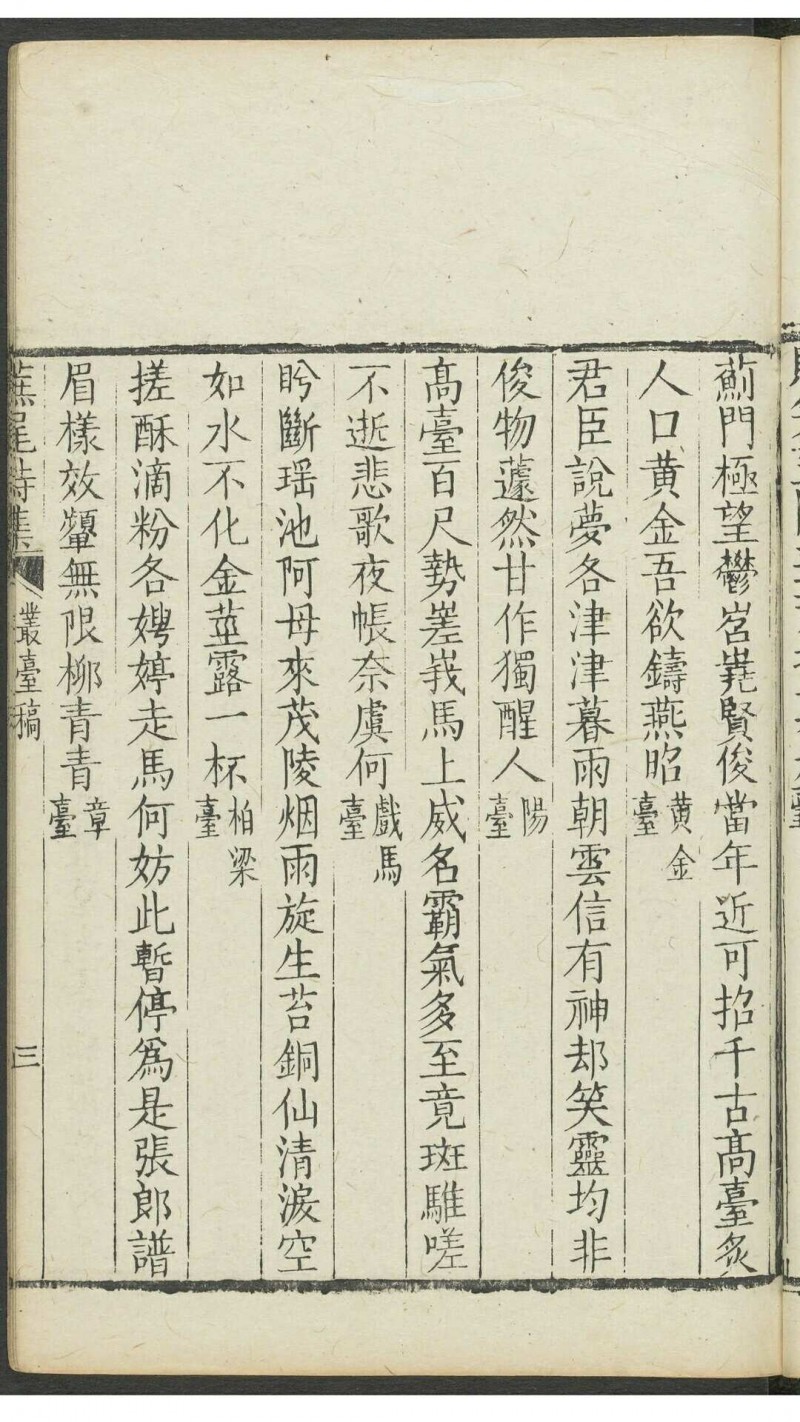 薊門極望鬱岧嶤賢俊當年近可招千古髙臺炙
人口黄金吾欲鑄燕昭黄金臺
君臣說夢各津津暮雨朝雲信有神却笑靈均非
俊物蘧然甘作獨醒人陽臺
髙臺百尺勢嵳峩馬上威名霸氣多至竟斑騅嗟
不逝悲歌夜帳奈虞何戲馬臺
盻斷瑶池阿母來茂陵烟雨旋生苔銅仙清淚空
如水不化金莖露一杯柏梁臺
搓酥滴粉各娉婷走馬何妨此暫停爲是張郎譜
眉樣效顰無限柳青青章臺
蕉尾詩集 叢臺稿 三